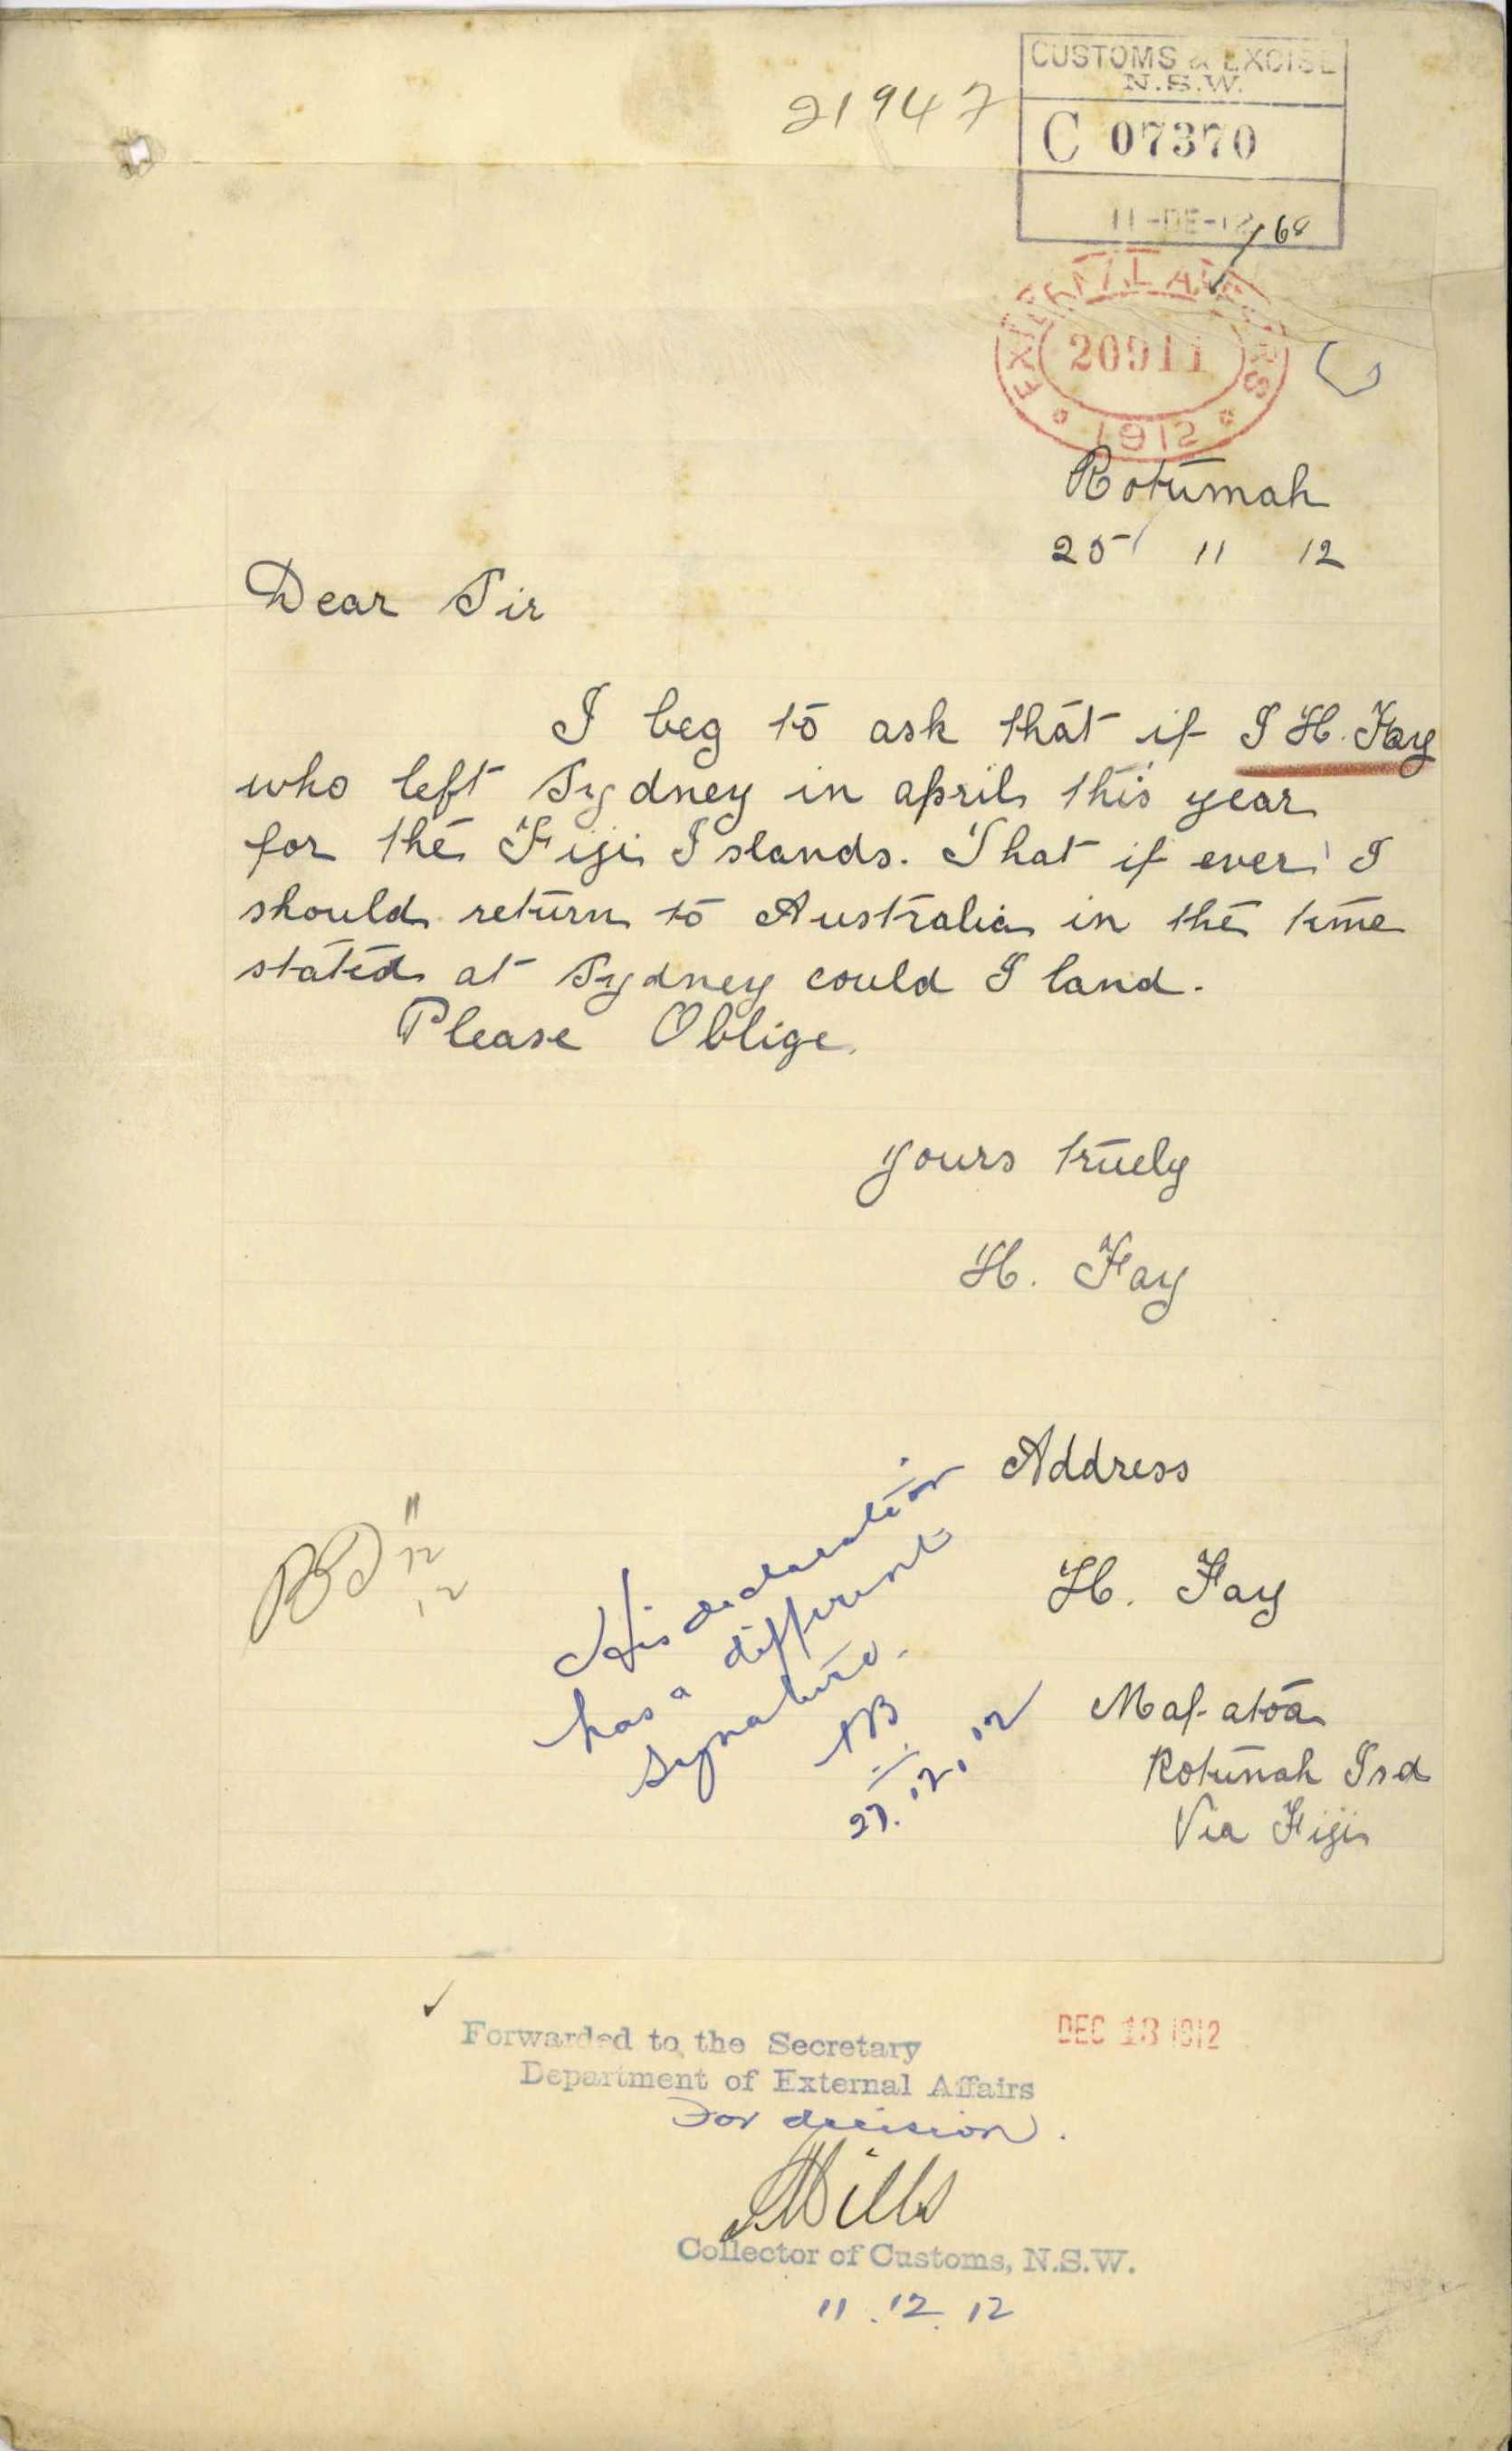 21947
CUSTOMS & EXCISE
N.S.W.
C 07370
11-DE-12
EXTERNAL AFFAIRS
20911
1912
Rotumah
25 11 12
Dear Sir
I beg to ask that if I H. Fay
who left Sydney in april this year
for the Fiji Islands. That if ever I
should return to Australia in the time
stated at Sydney could I land.
Please Oblige.
yours truely
H. Fay
Address
H. Fay
Maf-atoa
Rotumah Isd
Via Fiji
11
12
12
His declaration
has a different
signature.
27.12.12
Forwarded to the Secretary
DEC 13 1912
Department of External Affairs
For decision.
Mills
Collector of Customs, N.S.W.
11.12.12